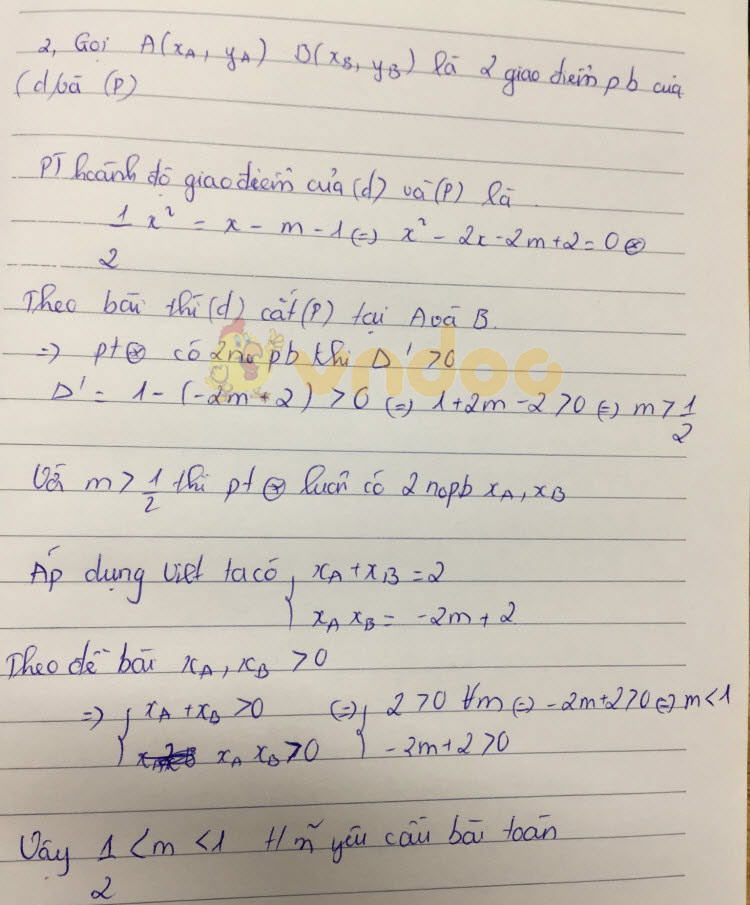 2, Gọi A(xA, yA) B(xB, yB) là 2 giao điểm pb của
(d) và (P)
PT hoành độ giao điểm của (d) và (P) là
1/2 x² = x - m - 1 (=) x² - 2x - 2m + 2 = 0 ⊛
Theo bài thì (d) cắt (P) tại A và B.
=> pt ⊛ có 2 no pb khi Δ' > 0
Δ' = 1 - (-2m + 2) > 0 (=) 1 + 2m - 2 > 0 (=) m > 1/2
Với m > 1/2 thì pt ⊛ luôn có 2 nopb xA, xB
Áp dụng Viet ta có { xA + xB = 2
xA xB = -2m + 2
Theo đề bài xA, xB > 0
=> { xA + xB > 0 (=) { 2 > 0 ∀m (=) -2m + 2 > 0 (=) m < 1
xA xB > 0 -2m + 2 > 0
Vậy 1/2 < m < 1 t/m yêu cầu bài toán
vndoc